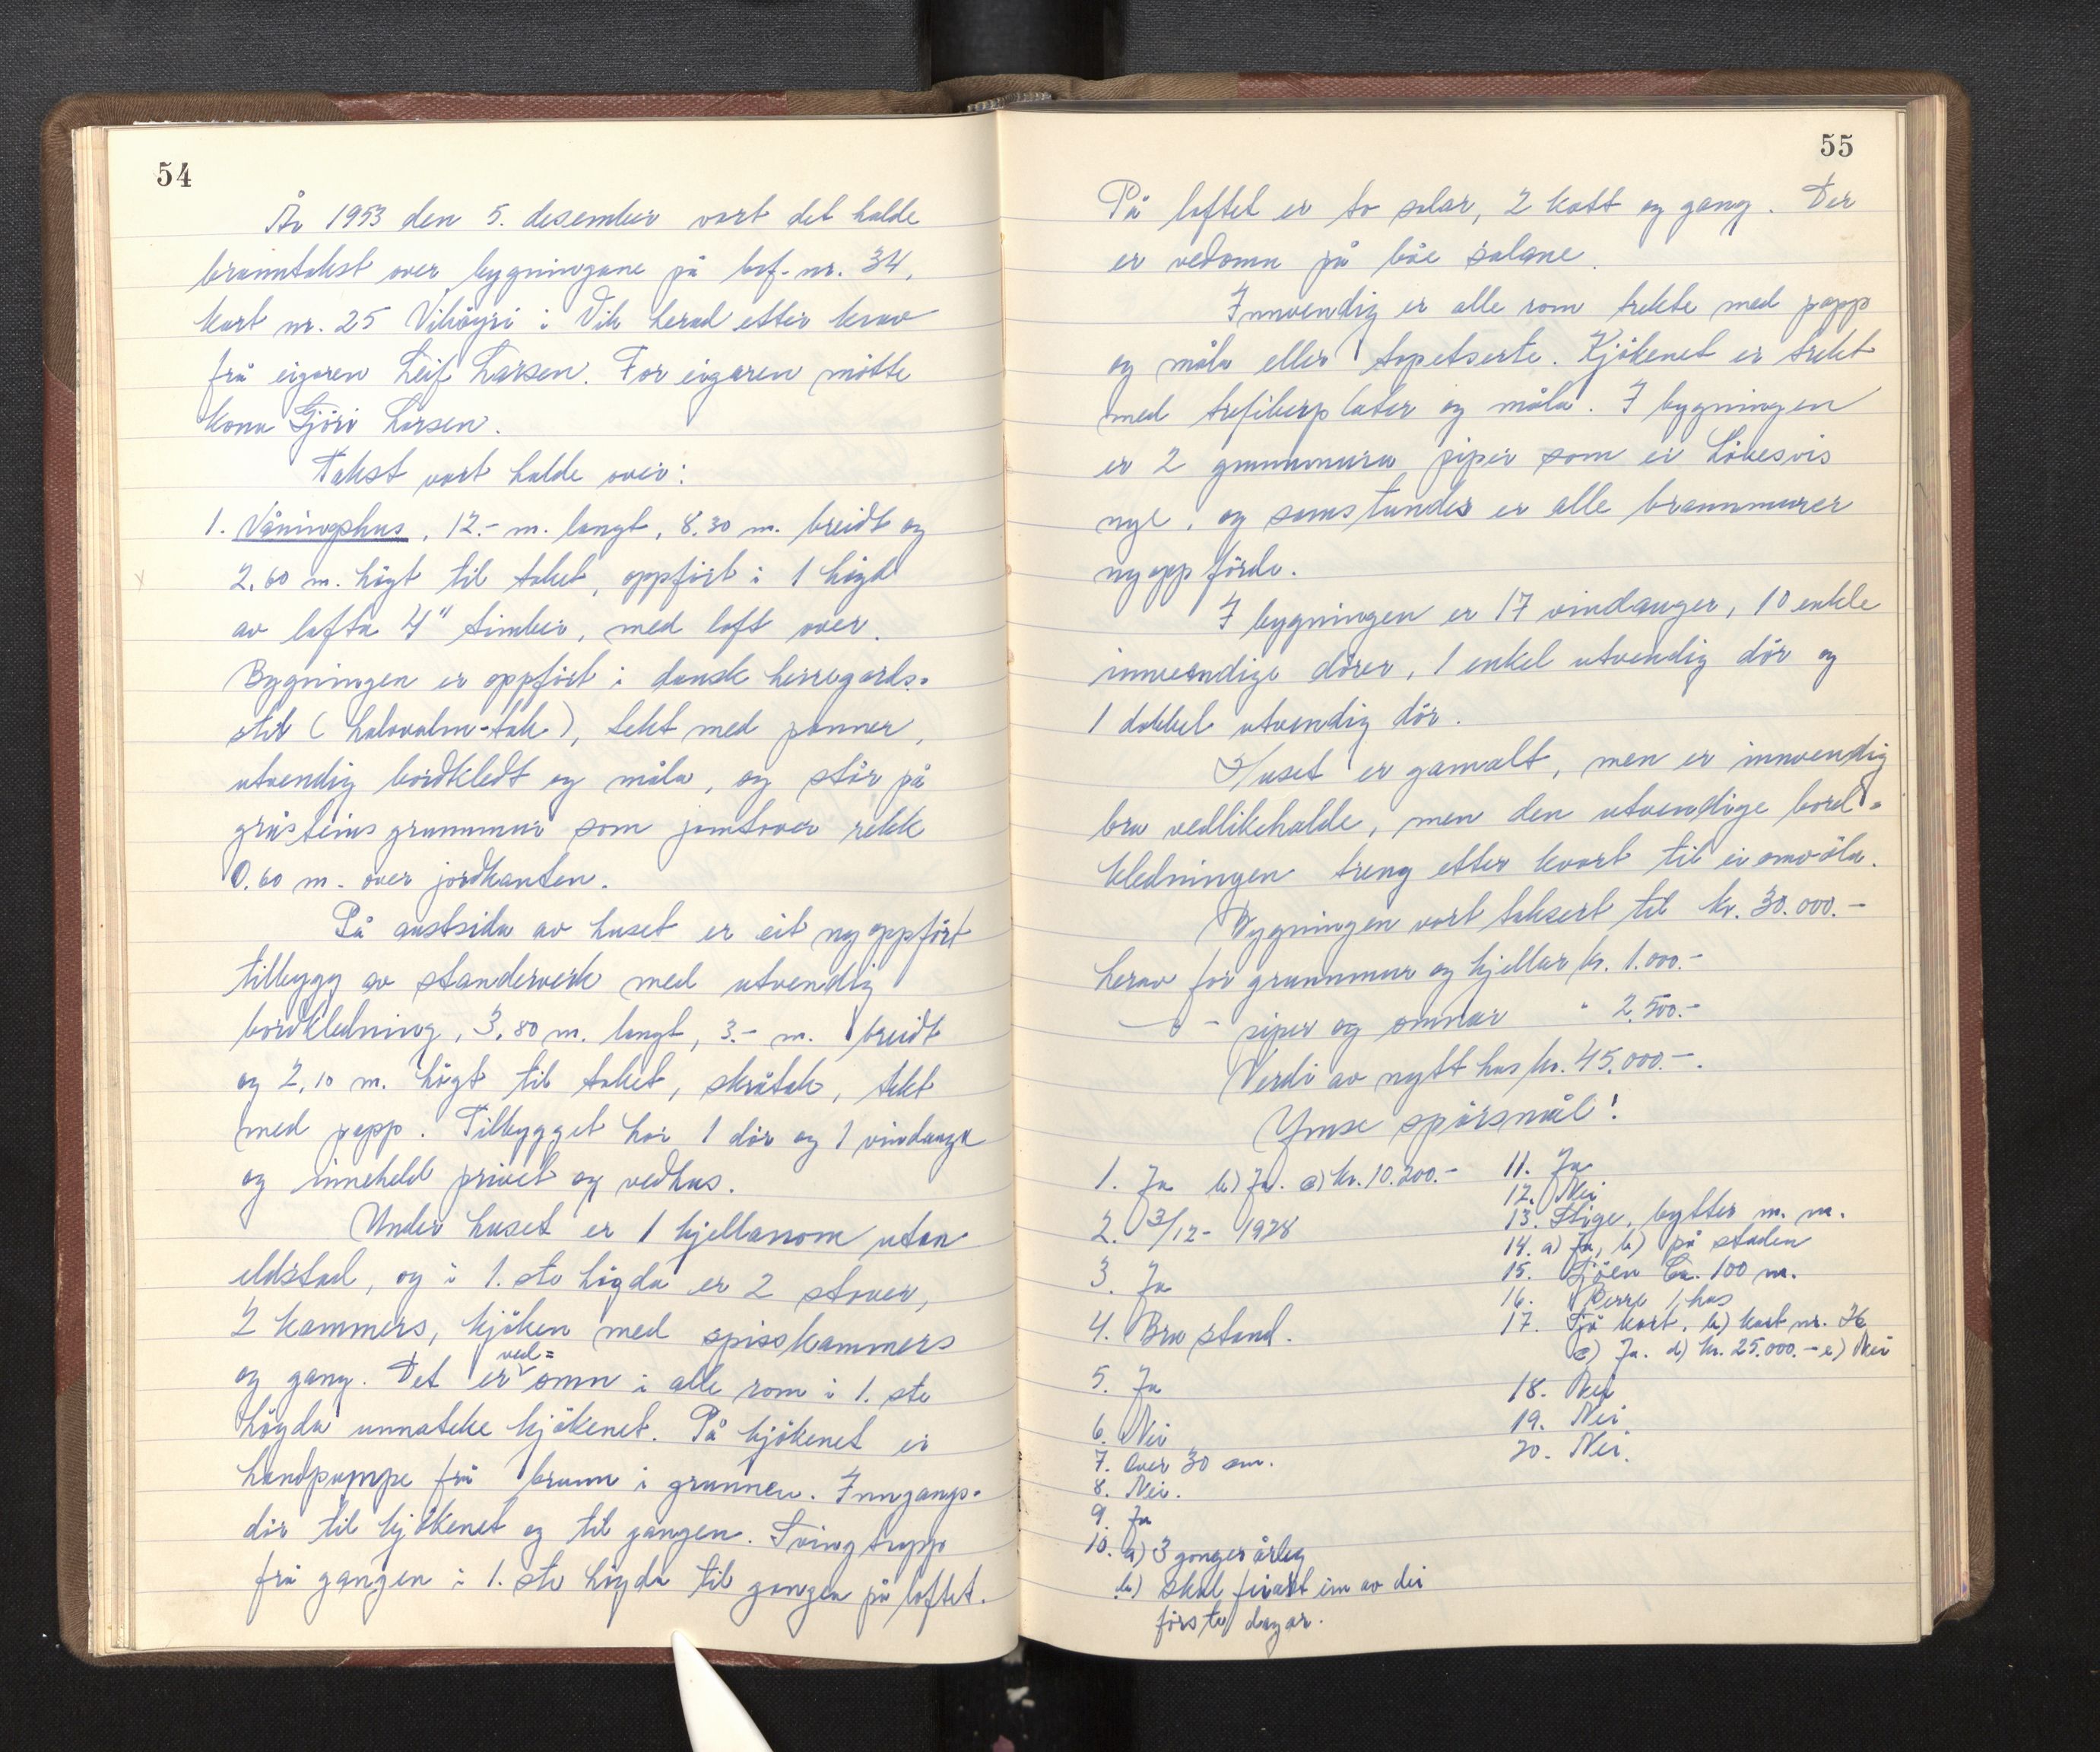 54
År 1953 den 5. desember vart det halde
branntakst over bygningane på bof.-nr. 34,
kart nr. 25 Vikøyri i Vik herad etter krav
frå eigaren Leif Larsen. For eigaren møtte
kona Gjöri Larsen.
Takst vart halde over:
1. Våningshus, 12.- m. langt, 8.30 m. breidt og
2.60 m. høgt til taket, oppført i 1 høgd
av lafta 4" timber, med loft over.
Bygningen er oppført i dansk herregards-
stil (halvvalm-tak), tekt med panner,
utvendig bordkledt og måla, og står på
gråsteins grunnmur som jamtover rekk
0.60 m. over jordkanten.
På austsida av huset er eit nyoppført
tilbygg av standerverk med utvendig
bordkledning, 3.80 m. langt, 3.- m. breidt
og 2,10 m. høgt til taket, skråtak, tekt
med papp. Tilbygget har 1 dør og 1 vindauga
og inneheld privet og vedhus.
Under huset er 1 kjellarrom utan
eldstad, og i 1. ste høgda er 2 stover,
2 kammers, kjøken med spisskammers
og gang. Det er ved= omn i alle rom i 1. ste
høgda unnateke kjøkenet. På kjøkenet er
handpumpe frå brunn i grunnen. Inngangs-
dør til kjøkenet og til gangen. Svingtrapp
frå gangen i 1. ste høgda til gangen på loftet.
55
På loftet er to salar, 2 kott og gang. Der
er vedomn på båe salane.
Innvendig er alle rom trekte med papp
og måla eller tapetserte. Kjøkenet er trekt
med trefiberplater og måla. I bygningen
er 2 grunnmura piper som er hövesvis
nye, og samstundes er alle brannmurer
nyoppförde.
I bygningen er 17 vindauger, 10 enkle
innvendige dører, 1 enkel utvendig dør og
1 dobbel utvendig dør.
Huset er gamalt, men er innvendig
bra vedlikehalde, men den utvendige bord-
kledningen treng etter kvart til ei omvöla.
Bygningen vart taksert til kr. 30.000.-
herav for grunnmur og kjellar kr. 1.000.-
-"- piper og omnar " 2.500.-
Verdi av nytt hus kr. 45.000.-.
Ymse spörsmål!
1. Ja b) Ja. c) kr. 10.200.-
2. 3/12- 1928
3. Ja
4. Bra stand.
5. Ja
6. Nei
7. Over 30 cm.
8. Nei.
9. Ja
10. a) 3 gonger årleg
b) skal feiast ein av dei
første dagar.
11. Ja
12. Nei
13. Stige, bytter m. m.
14. a) Ja, b) på staden
15. Sjöen Ca. 100 m.
16. 1 hus
17. Sjå kart. b) kart nr. 26
c) Ja. d) kr. 25.000.- e) Nei
18. Nei
19. Nei
20. Nei.